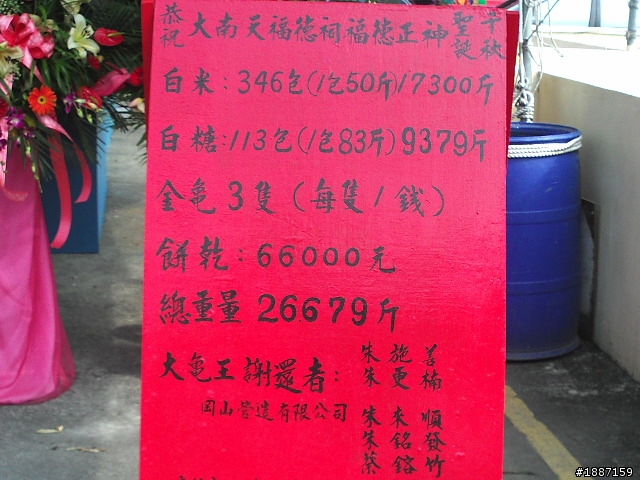 恭祝大南天福德祠福德正神聖誕千秋
白米：346包(1包50斤)17300斤
白糖：113包(1包83斤)9379斤
金龜3隻(每隻1錢)
餅乾：66000元
總重量26679斤
大龜王謝還者：
朱施善
朱更楠
岡山營造有限公司
朱來順
朱銘發
蔡鎔竹
#1887159